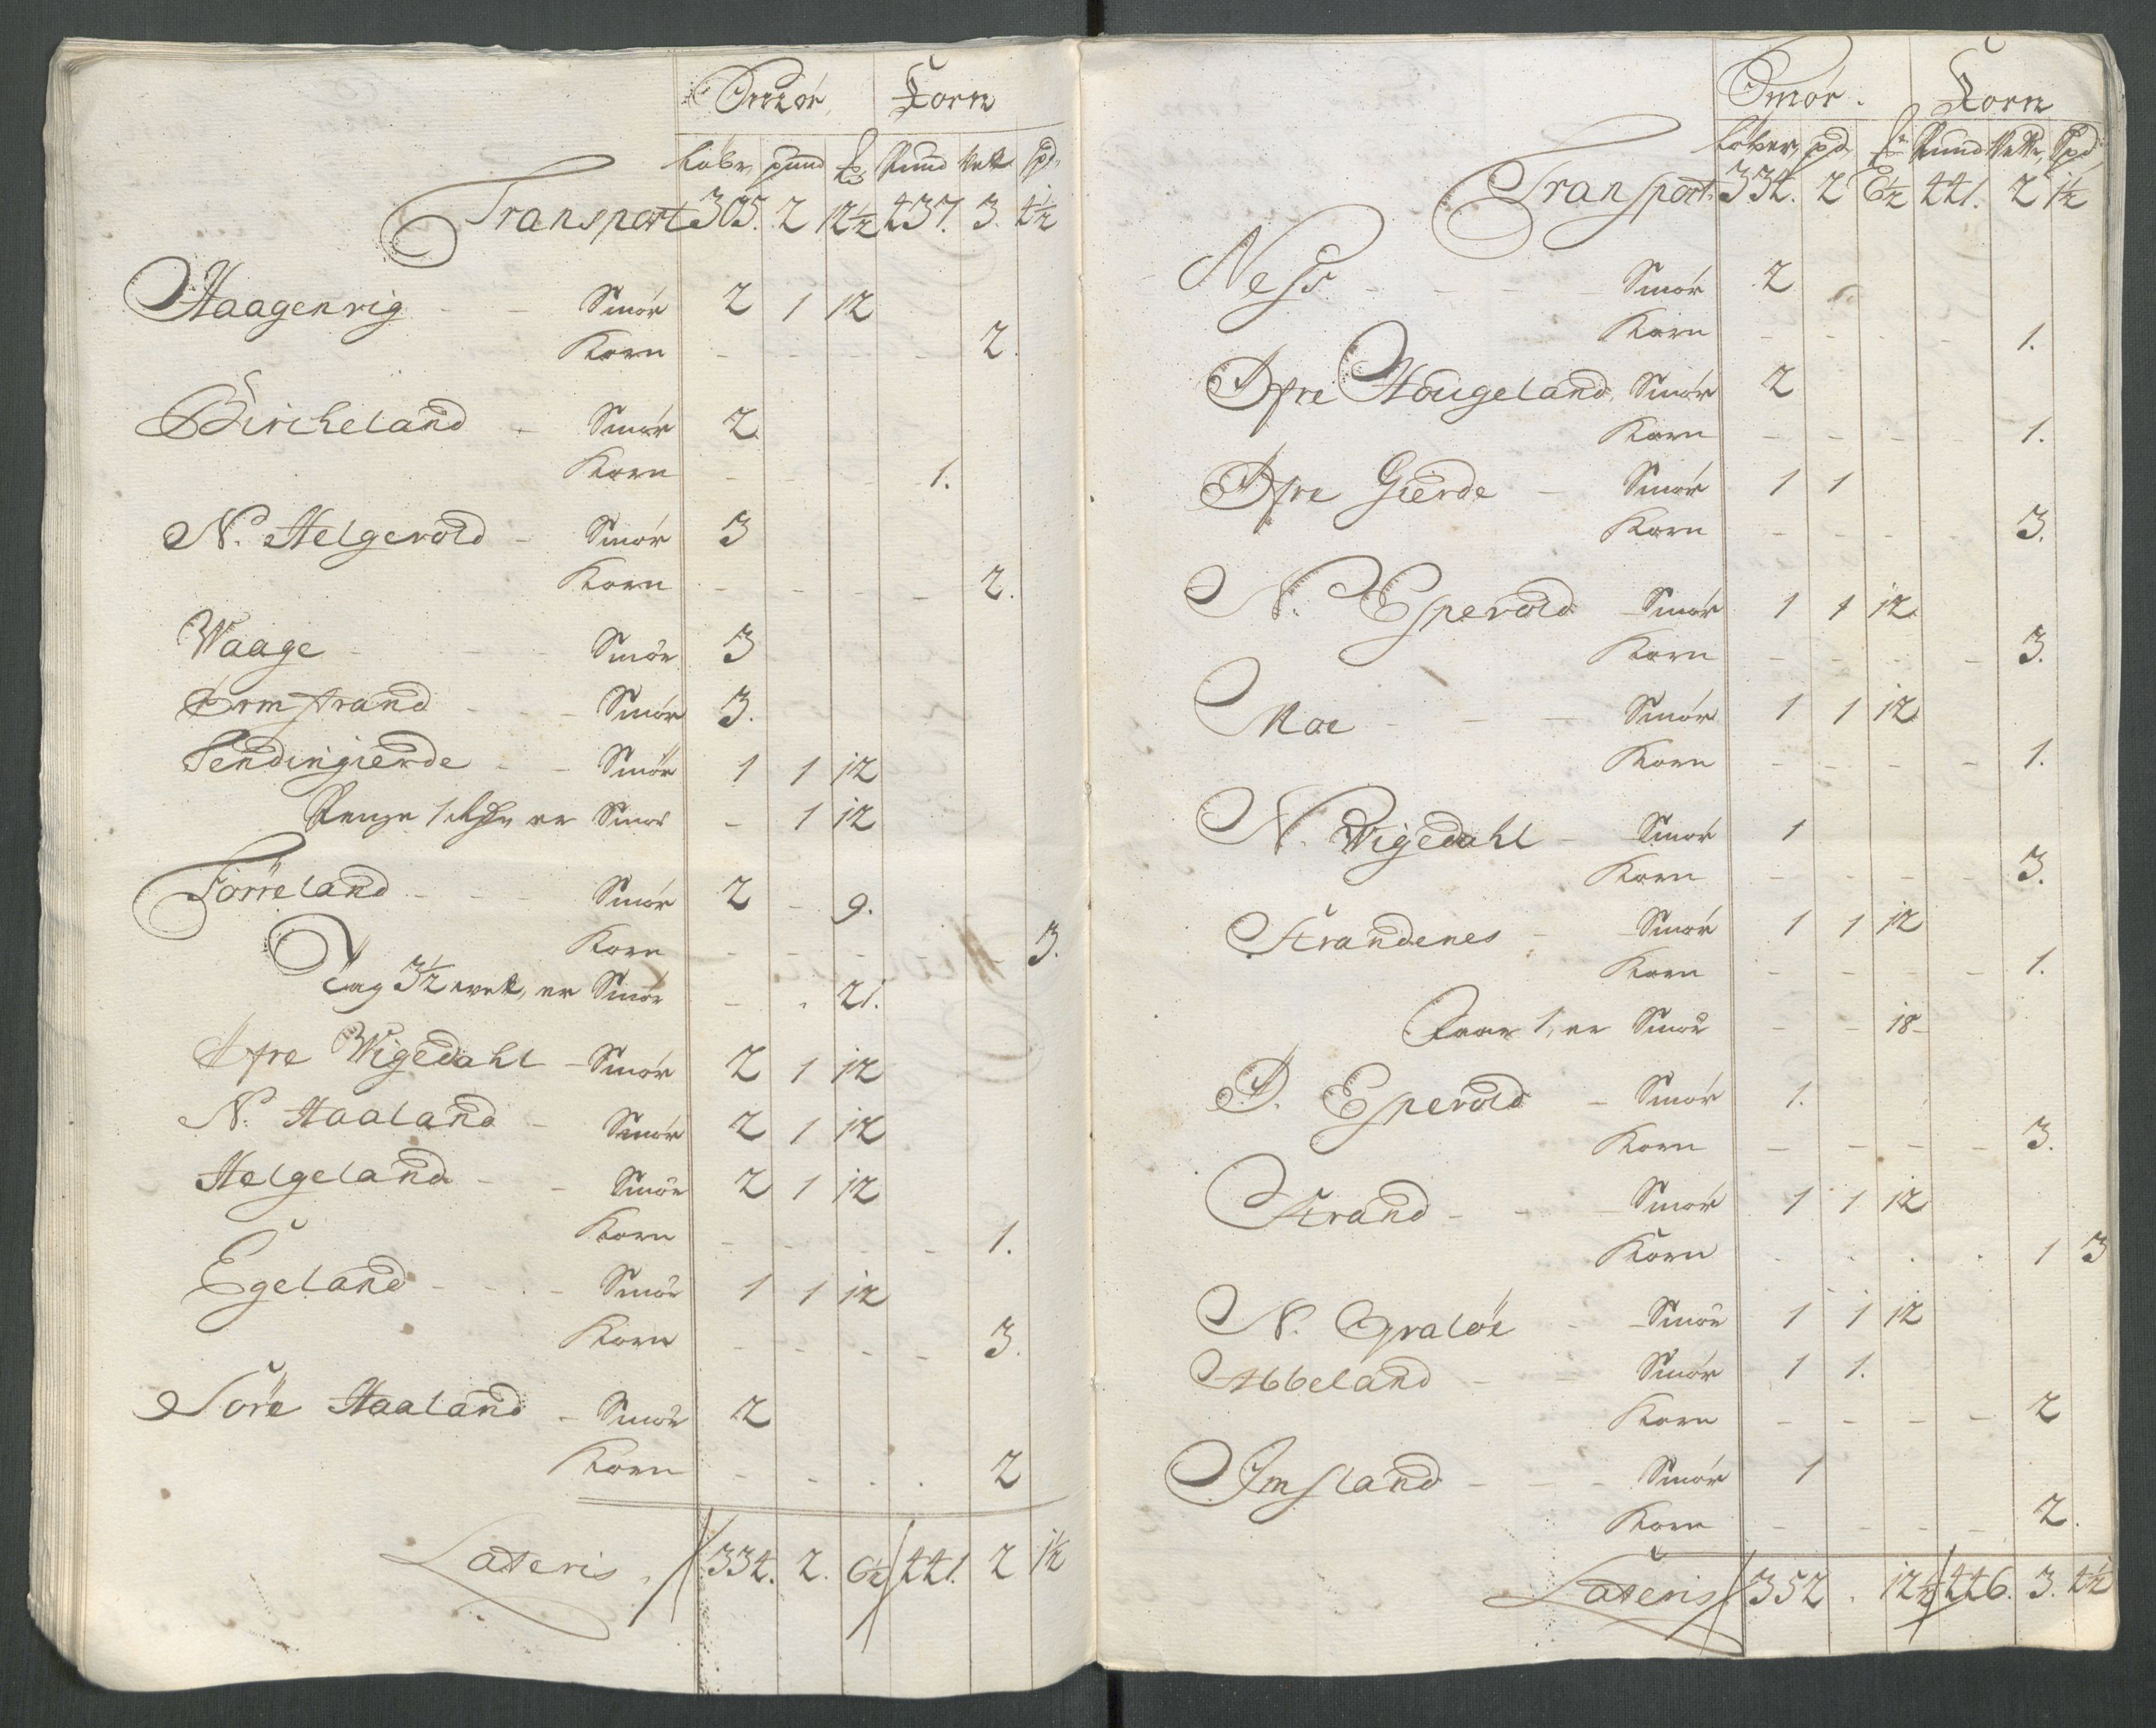 Smör Korn
Löber pund Pund Vett Spd
Transport 305. 2 12½ 437. 3. 4½
Haagenvig - - Smör 2 1 12
Korn - - - - - 2.
Bircheland - Smör 2
Korn - - - 1.
N. Helgevold - Smör 3
Korn - - - - - 2.
Waage - - - Smör 3
Ormstrand - - - Smör 3.
Sendingierde - - Smör 1 1 12
Penge 1 er Smör - 1 12
Törreland - - - Smör 2 - 9.
Korn - - - - - - 3.
Tag 3½ vett, er Smör - - 21.
Øfre Wigedahl - Smör 2 1 12
N. Haaland - Smör 2 1 12
Helgeland - - Smör 2 1 12
Korn - - - - - 1.
Egeland - - - Smör 1 1 12
Korn - - - - - 3.
Söre Haaland - Smör 2
Korn - - - - - 2
Lateris 334. 2. 6½ 441. 2 1½
Smör. Korn
Löber, pd Pund Vett, Spd
Transport. 334. 2 6½ 441. 2 1½
Ness - - - - Smör 2
Korn - - - - 1.
Øfre Hougeland, Smör 2
Korn - - - - 1.
Øfre Gierde - Smör 1 1
Korn - - - 3.
N. Espevold Smör 1 1 12
Korn - - - - 3.
Moe - - - Smör 1 1 12
Korn - - - - 1.
N. Wigedahl - Smör 1
Korn - - - - 3.
Strandenes - Smör 1 1 12
Korn - - - - 1.
Faar 1, er Smör - - 18 -
Ø. Espevold - Smör 1.
Korn - - - - 3.
Strand - - - Smör 1 1 12
Korn - - - - 1 3
N. Opraloe - - Smör 1 1 12
Abbeland - - Smör 1 1.
Korn - - - - 2
Imsland - - - Smör 1
Korn - - - - 2.
Lateris 352 . 12½ 446. 3. 4½